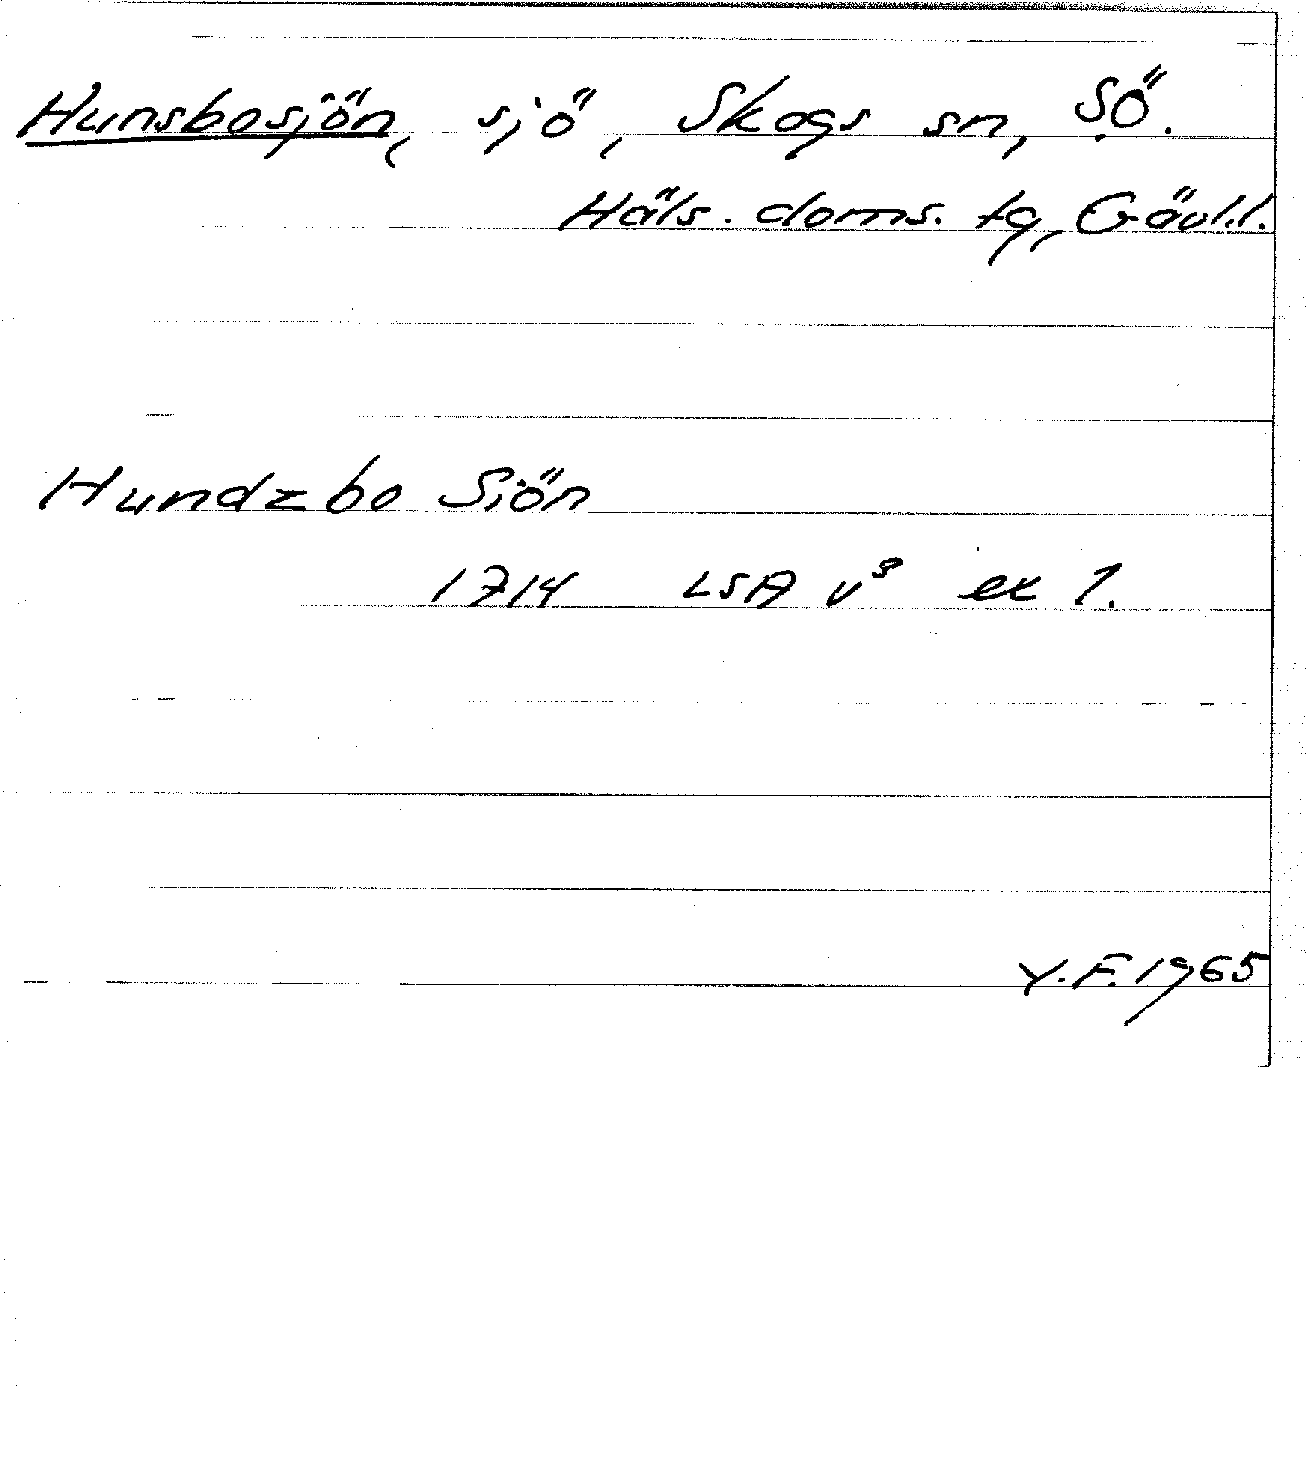 Hunsbosjön, sjö, Skogs sn, SÖ.
Häls. doms. tg, Gävl.l.
Hundzbo Siön
1714 LSA v³ ex 1.
Y.F. 1965